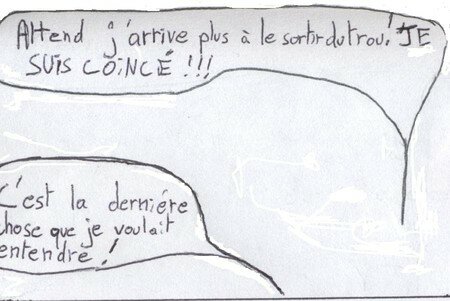 Attend j'arrive plus à le sortir du trou! JE
SUIS COINCÉ !!!
C'est la derniére
chose que je voulait
entendre!